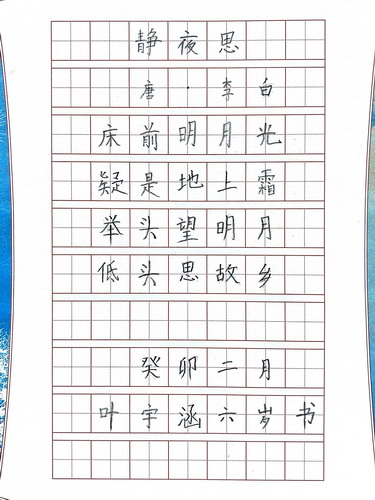 静夜思
唐·李白
床前明月光
疑是地上霜
举头望明月
低头思故乡
癸卯二月
叶宇涵六岁书